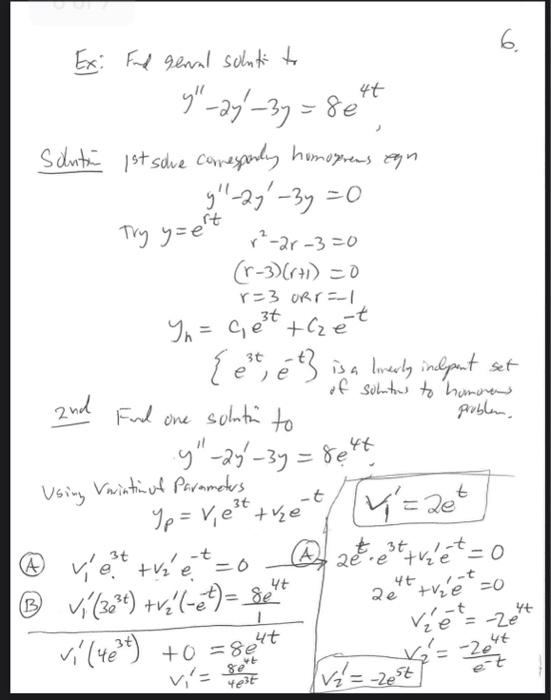 6.
Ex: Find general solution to
y'' - 2y' - 3y = 8e^{4t},
Solution 1st solve corresponding homogeneous eqn
y'' - 2y' - 3y = 0
Try y = e^{rt}
r² - 2r - 3 = 0
(r-3)(r+1) = 0
r = 3 OR r = -1
y_h = C₁e^{3t} + C₂e^{-t}
{e^{3t}, e^{-t}} is a linearly indpent set
of solutions to homogeneous
problem.
2nd Find one solution to
y'' - 2y' - 3y = 8e^{4t}.
Using Variation of Parameters
y_p = V₁e^{3t} + V₂e^{-t}
Ⓐ V₁'e^{3t} + V₂'e^{-t} = 0
Ⓑ V₁'(3e^{3t}) + V₂'(-e^{-t}) = 8e^{4t}/1
V₁'(4e^{3t}) + 0 = 8e^{4t}
V₁' = 8e^{4t}/4e^{3t}
V₁' = 2e^t
Ⓐ 2e^t · e^{3t} + V₂'e^{-t} = 0
2e^{4t} + V₂'e^{-t} = 0
V₂'e^{-t} = -2e^{4t}
V₂' = -2e^{4t}/e^{-t}
V₂' = -2e^{5t}